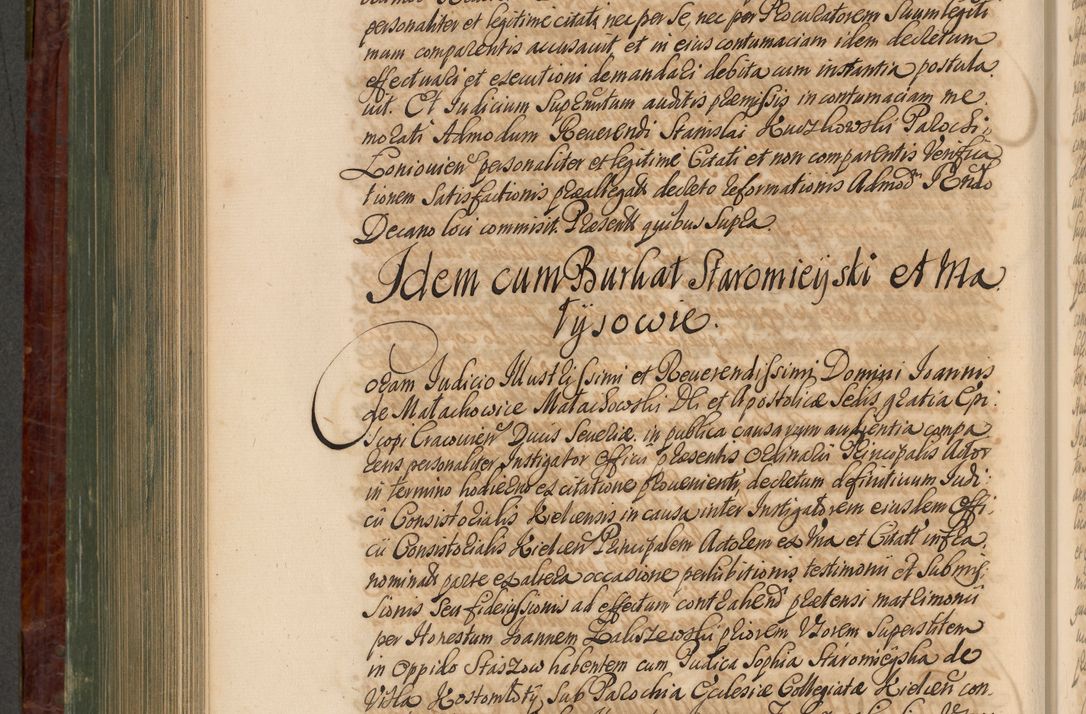 personaliter et legitime citati nec per se, nec per Procuratorem suum legiti
mum comparentis accusavit et in eius contumaciam idem decretum
effectuari et executioni demandari debita cum instantia postula.
vit. Et Iudicium Supremum auditis præmissis in contumaciam me.
morati Admodum Reverendi Stanislai Kuczkowski Parochi
Loniovien personaliter et legitime Citati et non comparentis Verifica
tionem Satisfactionis præallegati decreto reformationis Admod Rndo
Decano loci commisit. Præsent quibus Supra.
Idem cum Burhat Staromieyski et Ma
tysowie.
Coram Iudicio Illustrissimi et Reverendissimi Domini Ioannis
de Małachowice Małachowski Dei et Apostolicæ Sedis gratia Epi
scopi Cracovien Ducis Severiæ in publica causarum audientia compa
rens personaliter Instigator Officii præsentis Ordinarii Principalis Actor
in termino hodierno ex citatione proveniente decretum definitivum Iudi
cii Consistorialis Kielcensis in causa inter Instigatorem eiusdem Offi
cii Consistorialis Kielcen Principalem Actorem ex una et Citati infra
nominati parte ex altera occasione perhibitionis testimonii et Submis
sionis seu fideiussionis ad effectum contrahendi prætensi matrimonii
per Honestum Ioannem Zaliszewski priorem Uxorem Superstitem
in Oppido Staszow habentem cum Pudica Sophia Staromieyska de
Villa Kostomłoty, sub Parochia Ecclesiæ Collegiatæ Kielcen con